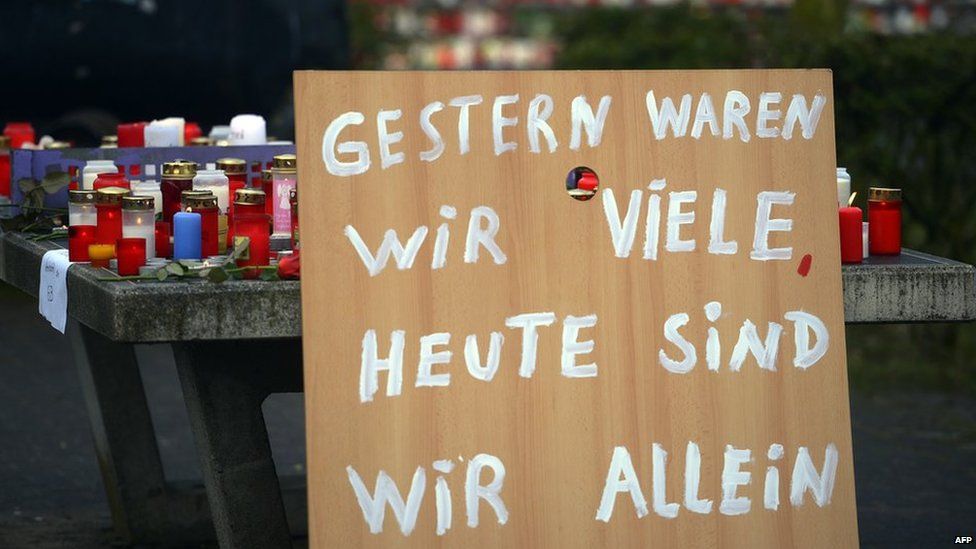 GESTERN WAREN
WiR ViELE,
HEUTE SiND
WiR ALLEiN
AFP